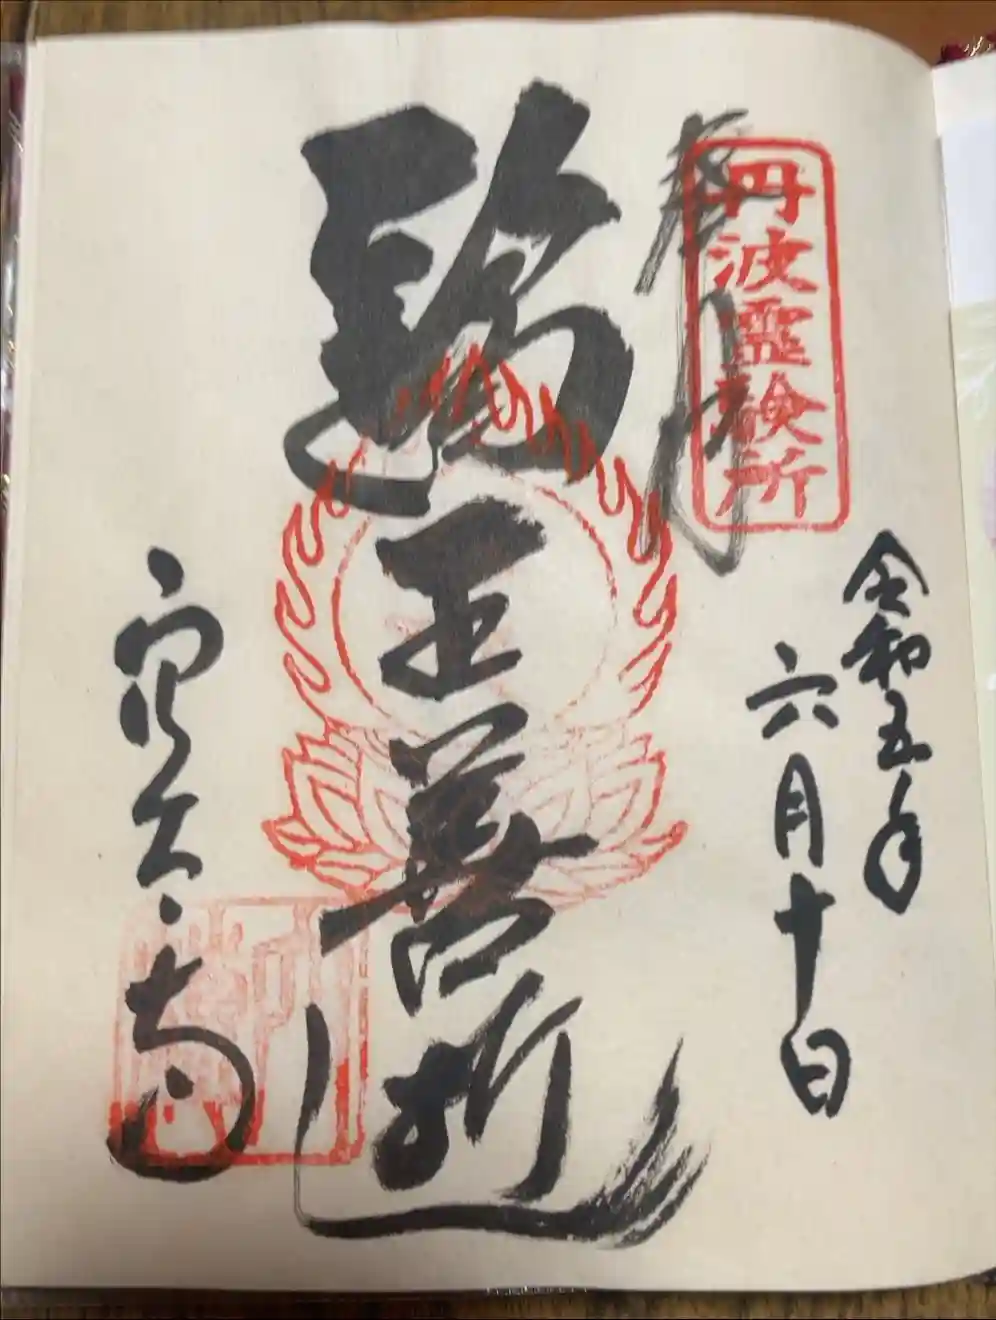 令和五年
六月十日
奉拝
丹波霊験所
醫王善逝
穴太寺